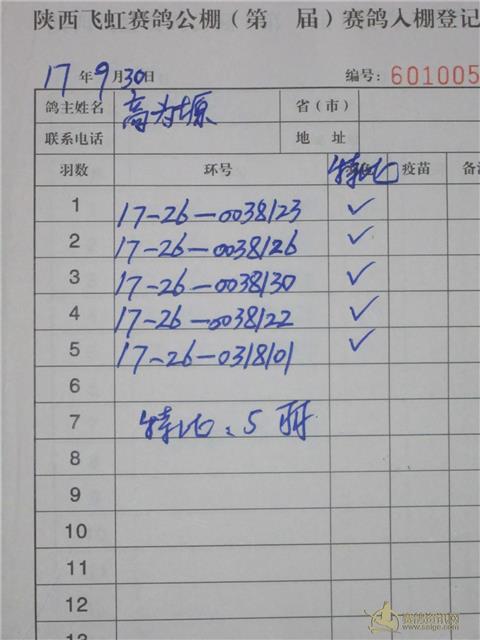 陕西飞虹赛鸽公棚（第 届）赛鸽入棚登记
17年9月30日 编号：601005
鸽主姓名 高为塬 省（市）
联系电话 地 址
羽数 环号 特比 疫苗 备
1 17-26-0038123 ✓
2 17-26-0038126 ✓
3 17-26-0038130 ✓
4 17-26-0038122 ✓
5 17-26-0318101 ✓
6
7 特比：5羽
8
9
10
11
12
13
赛鸽资讯网
www.saige.com